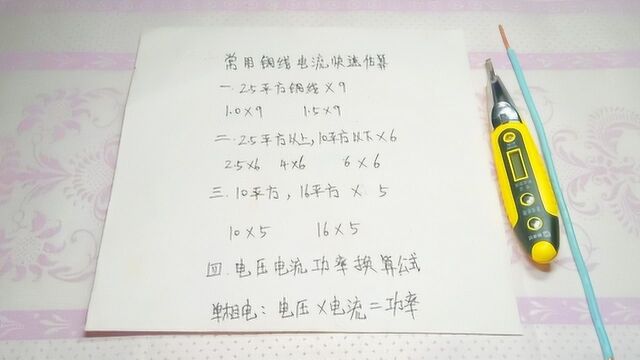 常用铜线电流快速估算
一.2.5平方铜线×9
1.0×9 1.5×9
二.2.5平方以上,10平方以下×6
2.5×6 4×6 6×6
三.10平方,16平方×5
10×5 16×5
四.电压电流功率换算公式
单相电:电压×电流=功率